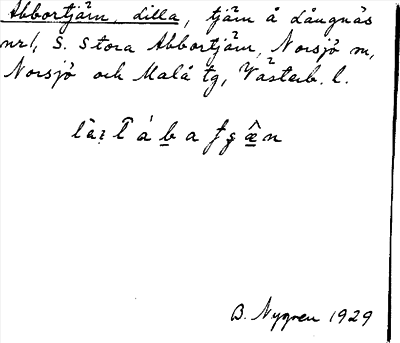 Abbortjärn, Lilla, tjärn å Långnäs
nr 1, S. Stora Abbortjärn, Norsjö sn,
Norsjö och Malå tg, Västerb. l.
B. Nygren 1929